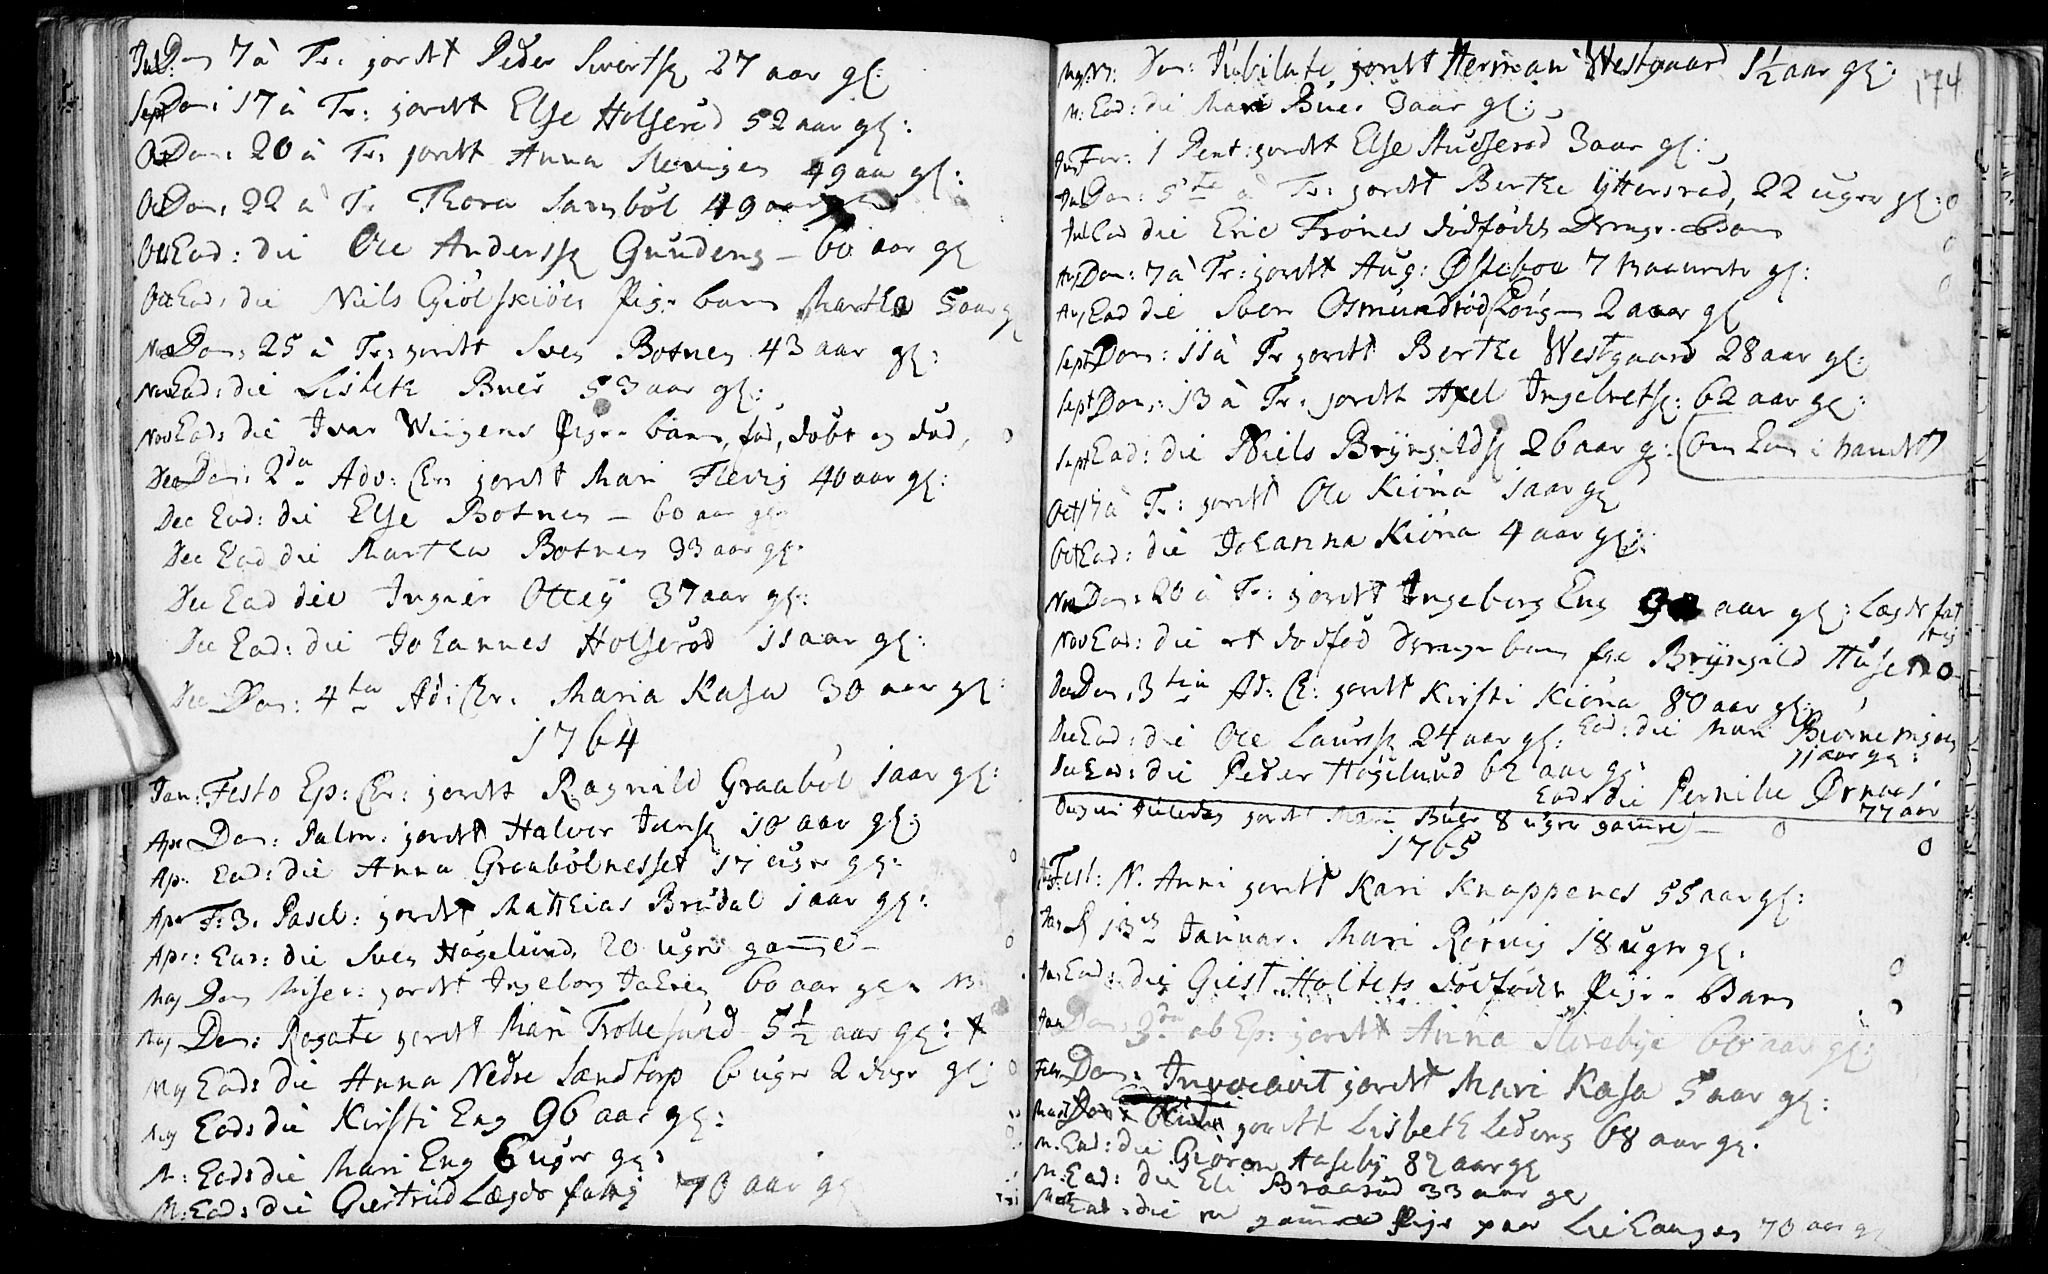 Jul: Dom 7 à Tr: jordet Peder Sivertss 27 aar gl:
Sept Dom: 17 à Tr: jordet Else Holserød 52 aar gl:
Oct Dom: 20 à Tr: jordet Anna 49 aar gl:
Oct Dom: 22 à Tr Thora Sambøl 49 aar
Oct Ead: die Ole Anderss Guudeng – 60 aar gl
Oct Ead: die Niels Giølskiøer Pige barn Marthe 5 aar g
Nov Dom: 25 à Tr: jordet Sven Botnen 43 aar gl:
Nov Ead: die Lisbeth Buer 53 aar gl:
Nov Ead: die Ivar Wiigens Pige barn, fød, døbt og død,
Dec Dom: 2da Adv: Chr: jordet Mari Flevig 40 aar gl:
Dec Ead: die Else Botnen – 60 aar gl:
Dec Ead die Marthe Botnen 33 aar gl:
Dec Ead die Ingier Ottey 37 aar gl:
Dec Ead: die Johannes Holserød 11 aar gl:
Dec Dom: 4ta Ad: Chr. Maria Kasa 30 aar gl:
1764
Jan: Festo Ep: Chr: jordet Ragnild Graabøl 1 aar gl:
Apr Dom: Palm: jordet Halvor Jenss 10 aar gl:
Apr: Ead: die Anna Graabølnesset 17 uger gl:
Apr F: 3. Pasch: jordet Matthias Brudal 1 aar gl:
Apr: Ead: die Sven Høgelund 20 uger gamel –
Maj Dom Miser: jordet Ingeborg 60 aar gl:
Maj Dom: Rogate jordet Mari Trollesund 5½ aar gl:
Maj Ead: die Anna Nedre Sandtorp 6 uger 2 dage gl:
Maj Ead: die Kirsti Eng 96 aar gl:
M: Ead: die Mari Eng 6 uger gl:
M: Ead: die Giertrud Lægds fattig 70 aar gl
174
Maj: Dom: Jubilate jordet Herman Westgaard 1½ aar gl:
M: Ead: die Mari Buer 3 aar gl:
Jun Fer: 1 Pent: jordet Else Huuserød 3 aar gl:
Jul Dom: 5te à Tr: jordet Berthe Yttersrød, 22 uger gl: 0
Jul Ead die Eric Trønes dødfødte Drenge-Barn 0
Aug Dom: 7 à Tr: jordet Aug: Østeboe 7 maaneder gl: 0
Aug Ead die Sven Osmundrød 2 aar gl
Sept Dom: 11 à Tr jordet Berthe Westgaard 28 aar gl:
Sept Dom: 13 à Tr: jordet Axel Ingelvets: 62 aar gl:
Sept Ead: die Niels Bryngilds 26 aar g:
Oct 17 à Tr: jordet Ole Kiøna 1 aar gl
Oct Ead: die Johanna Kiøna 4 aar gl:
Nov Dom: 20 à Tr: jordet Ingeborg Eng aar gl: Lægds fat
tig
Nov Ead: die et dødfød drenge barn fra Bryngild Huse 0
Dec Dom: 3tia Ad: C: jordet Kirsti Kiøna 80 aar gl:
Dec Ead: die Ole Laurss 24 aar gl: Ead: die Mari Biørnemyren
71 aar gl:
Dec Ead: die Peder Høgelund 62 aar gl: Ead: die Pernille Ørnæs
77 aar
Dagen Juledag jordet Mari Buer 8 uger gamel – 0
1765
Jan Fest: N. Anni jordet Kari Knappenes 55 aar gl:
Jan d 13de Januar. Mari Rørvig 18 uger gl. 0
Jan Ead: die Giest Holtets dødfødte Pige-Barn 0
Jan Dom 3tia ab Ep: jordet Anna 60 aar gl:
Febr Dom: Invocavit jordet Mari Kasa 5 aar gl:
Mart Dom: jordet Lisbeth Ledeng 68 aar gl.
M. Ead: die Giøron Aaseby 82 aar gl
M. Ead: die Eli Braarud 33 aar gl
Mart Ead: die en gammel Pige paa Liehaugen 70 aar gl